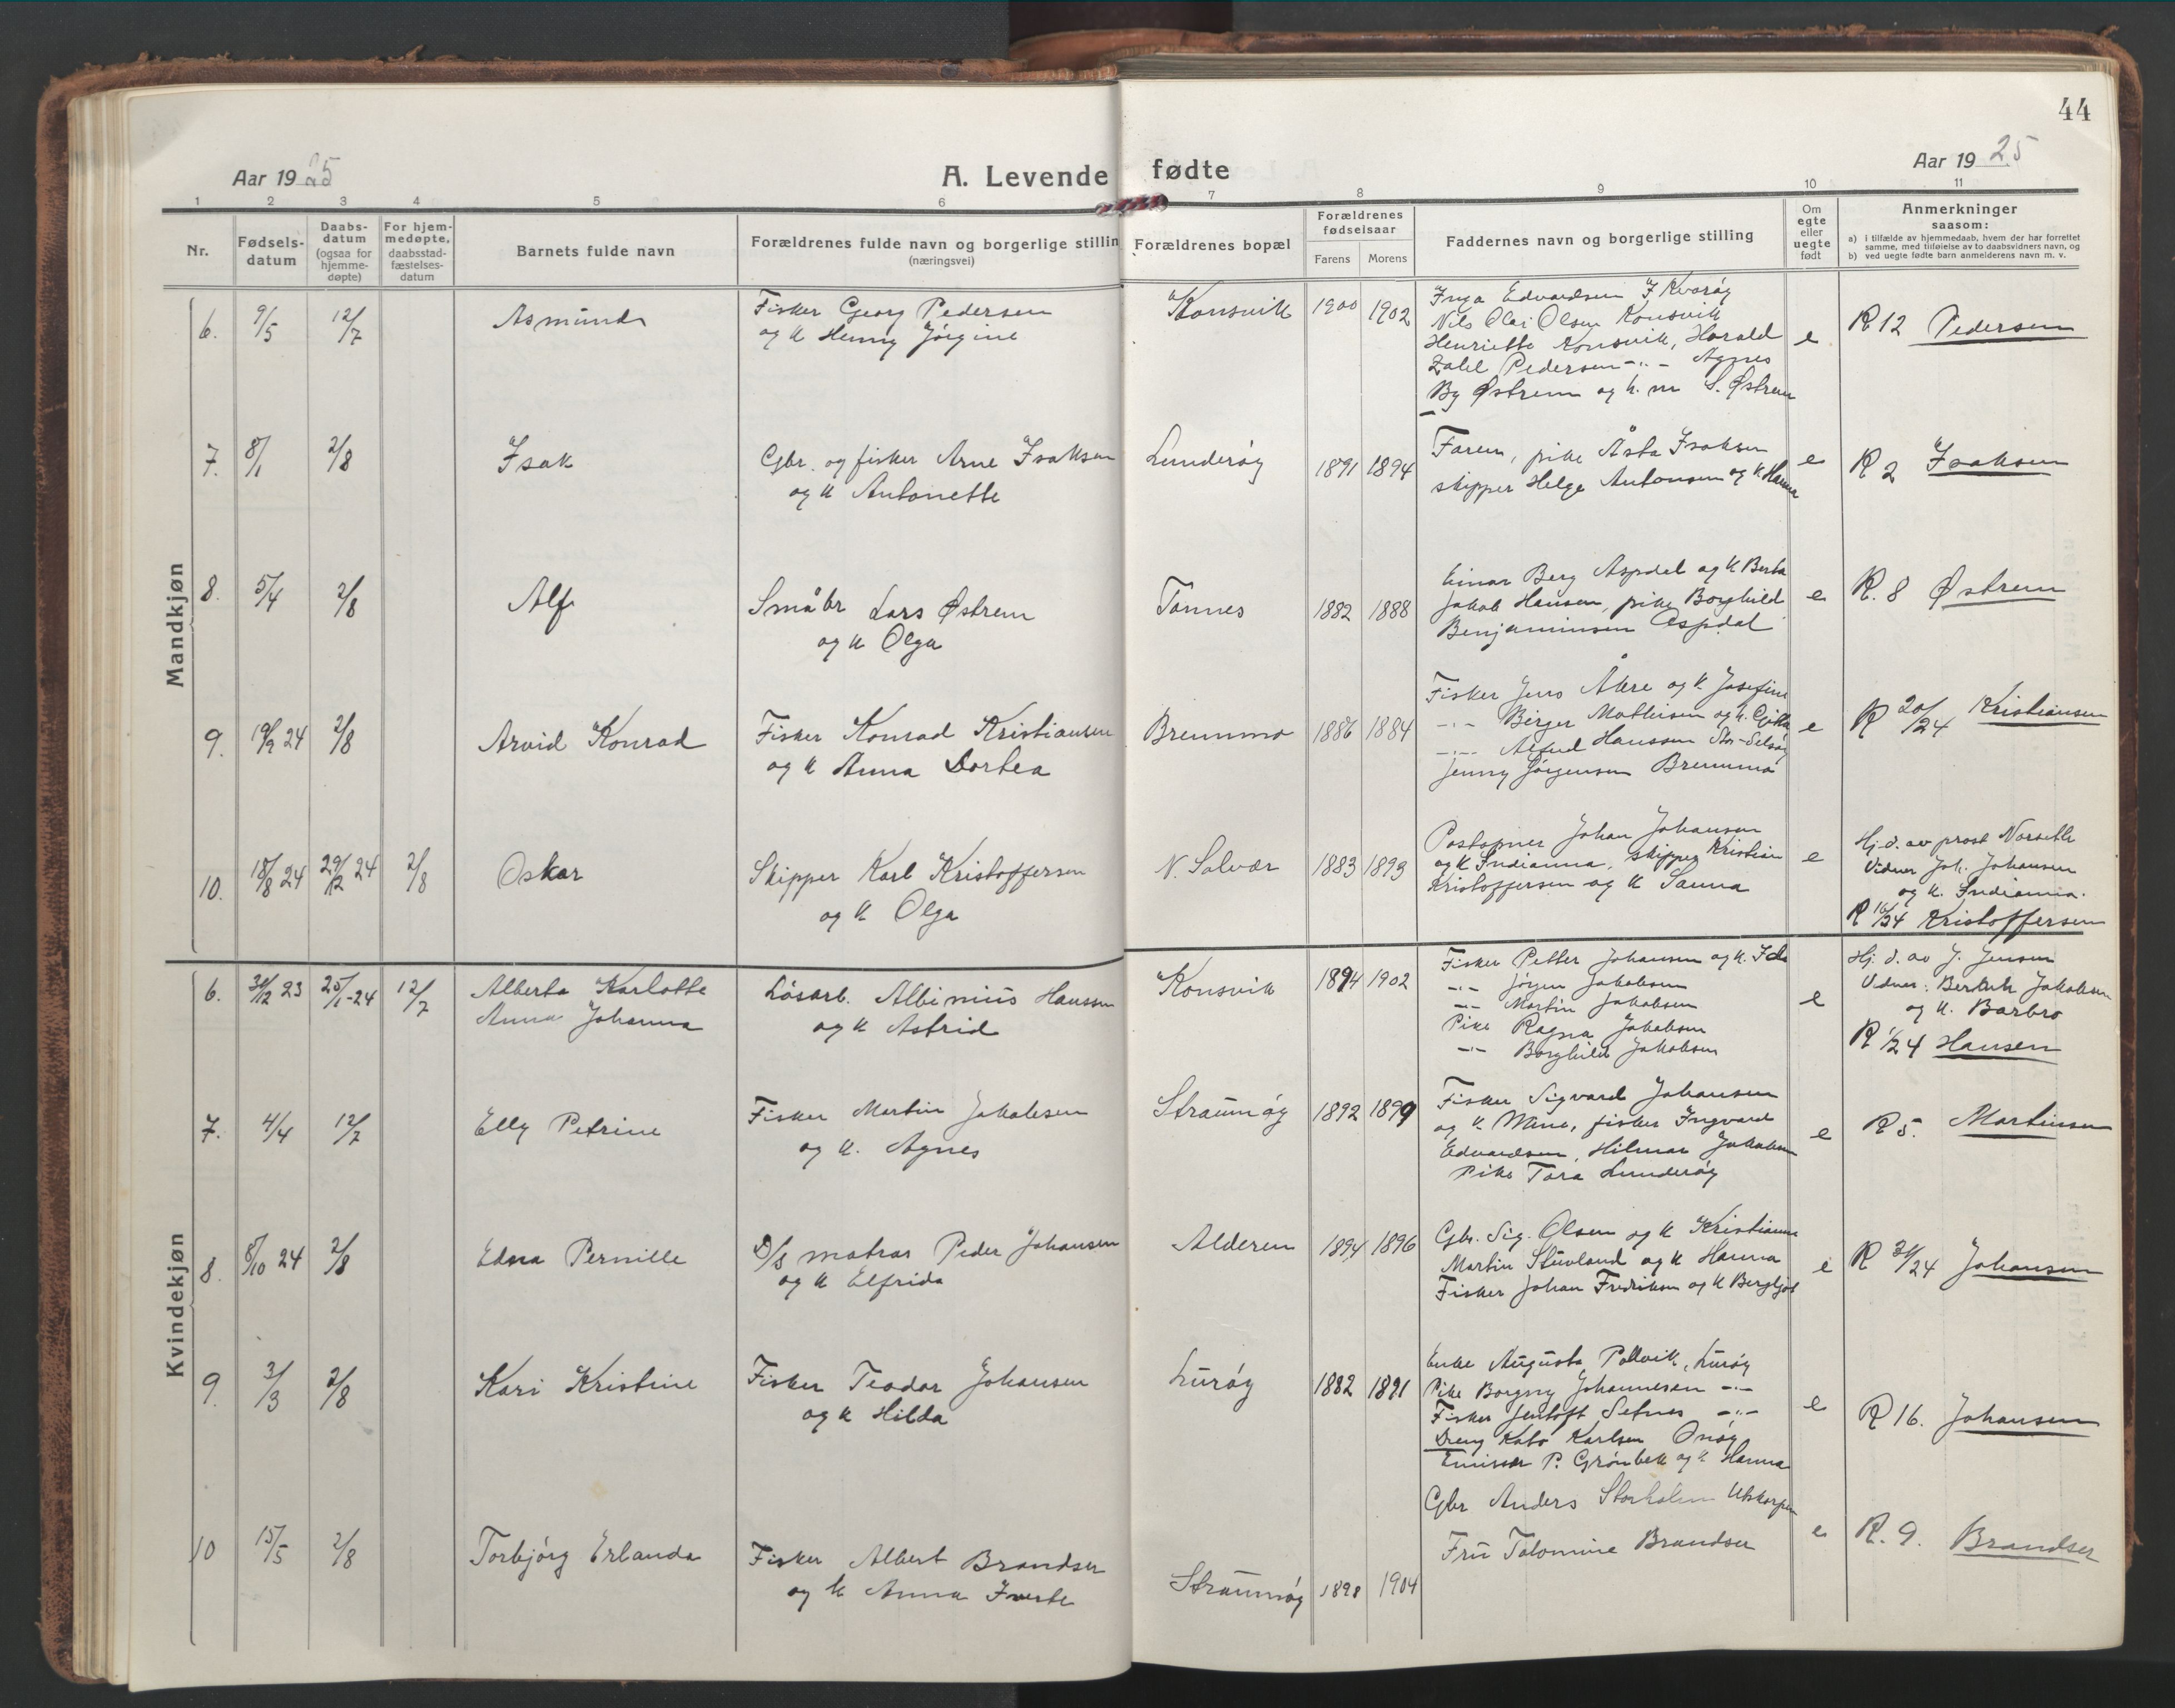 44
Aar 1925
A. Levende fødte
Aar 1925
1 2 3 4 5 6 7 8 9 10 11
Nr.
Fødsels-
datum
Daabs-
datum
(ogsaa for
hjemme-
døpte)
For hjem-
medøpte,
daabsstad-
fæstelses-
datum
Barnets fulde navn
Forældrenes fulde navn og borgerlige stillin
(næringsvei)
Forældrenes bopæl
Forældrenes
fødselsaar
Farens Morens
Faddernes navn og borgerlige stilling
Om
egte
eller
uegte
født
Anmerkninger
saasom:
a) i tilfælde av hjemmedaab, hvem der har forrettet
samme, med tilføielse av to daabsvidners navn, og
b) ved uegte fødte barn anmelderens navn m. v.
Mandkjøn
6. 9/5 12/7 Asmund
Fisker Georg Pedersen
og k Henny Jørgine
Konsvik 1900 1902
Inga Edvardsen I Kvarøy
Nils Olai Olsen Konsvik
Henriette Konsvik, Harald
Pedersen -"- Agnes
Østrem og h. m S. Østrem
e
R 12 Pedersen
7. 8/1 2/8 Isak
Gbr. og fisker Arne Isaksen
og k Antonette
Lunderøy 1891 1894
Faren, pike Åsta Isaksen
skipper Helge Antonsen og k Hanna
e
R 2 Isaksen
8. 5/4 2/8 Alf
Småbr Lars Østrem
og k Olga
Tonnes 1882 1888
Einar Berg Aspdal og k Berta
Jakob Hansen, pike Borghild
Benjaminsen Aspdal
e
R. 8 Østrem
9. 19/9 24 2/8 Arvid Konrad
Fisker Konrad Kristiansen
og k Anna Dortea
Bremmo 1886 1884
Fisker Jens Åkre og k Josefine
-"- Birger Mathisen og k.
-"- Alfred Hansson Stor-Selsøy
Jenny Jørgensen Bremmo
e
R 20/24 Kristiansen
10. 18/8 24 29/12 24 2/8 Oskar
Skipper Karl Kristoffersen
og k Olga
N. Solvær 1883 1893
Postopner Johan Johansen
og k Indianna, skipper Kristian
Kristoffersen og k Sanna
e
Hj. d. av prost Norseth
Vidner Joh. Johansen
og k. Indianna.
R 16/24 Kristoffersen
Kvindekjøn
6. 31/12 23 25/1-24 12/7 Alberta Karlotte
Anna Johanna
Løsarb. Albinius Hanssen
og k Astrid
Konsvik 1894 1902
Fisker Petter Johansen og k. Ida
-"- Jørgen Jakobsen
-"- Martin Jakobsen
Pike Ragna Jakobsen
-"- Borghild Jakobsen
e
Hj. d. av J. Jensen
Vidner: Jakobsen
og k. Barbro
R 1/24 Hansen
7. 4/4 12/7 Elly Petrine
Fisker Martin Jakobsen
og k. Agnes
Straumøy 1892 1899
Fisker Sigvard Johansen
og k. Mina, fisker Ingvard
Edvardsen, Hilmar Jakobsen
Pike Tora Lunderøy
e
R 5. Martinsen
8. 8/10 24 2/8 Edna Pernille
D/s matros Peder Johansen
og k Elfrida
Alderen 1894 1896
Gbr. Sig. Olsen og k Kristianna
Martin Stuvland og k Hanna
Fisker Johan Fredriksen og k Bergljot
e
R 31/24 Johansen
9. 3/3 2/8 Kari Kristine
Fisker Teodor Johansen
og k Hilda
Lurøy 1882 1891
Enke Augusta Pollvik, Lurøy
Pike Borgny Johannesen -"-
Fisker Jentoft Setnes -"-
Dreng Kato Karlsen Onøy
Emissær P. Grønbek og k Hanna
e
R 16. Johansen
10 15/5 2/8 Torbjørg Erlanda
Fisker Albert Brandser
og k Anna
Straumøy 1898 1904
Gbr Anders Storholm Utskarpen
Fru Tolomine Brandser
e
R. 9. Brandser